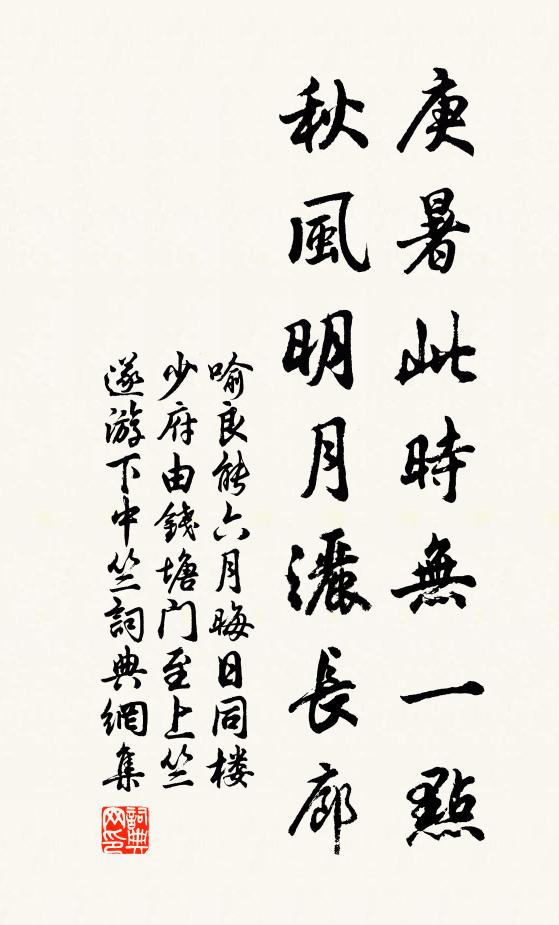 庚暑此時無一點
秋風明月灑長廊
喻良能六月晦日同楼
少府由錢塘门至上竺
遂游下中竺詞典網集
詞典
网印